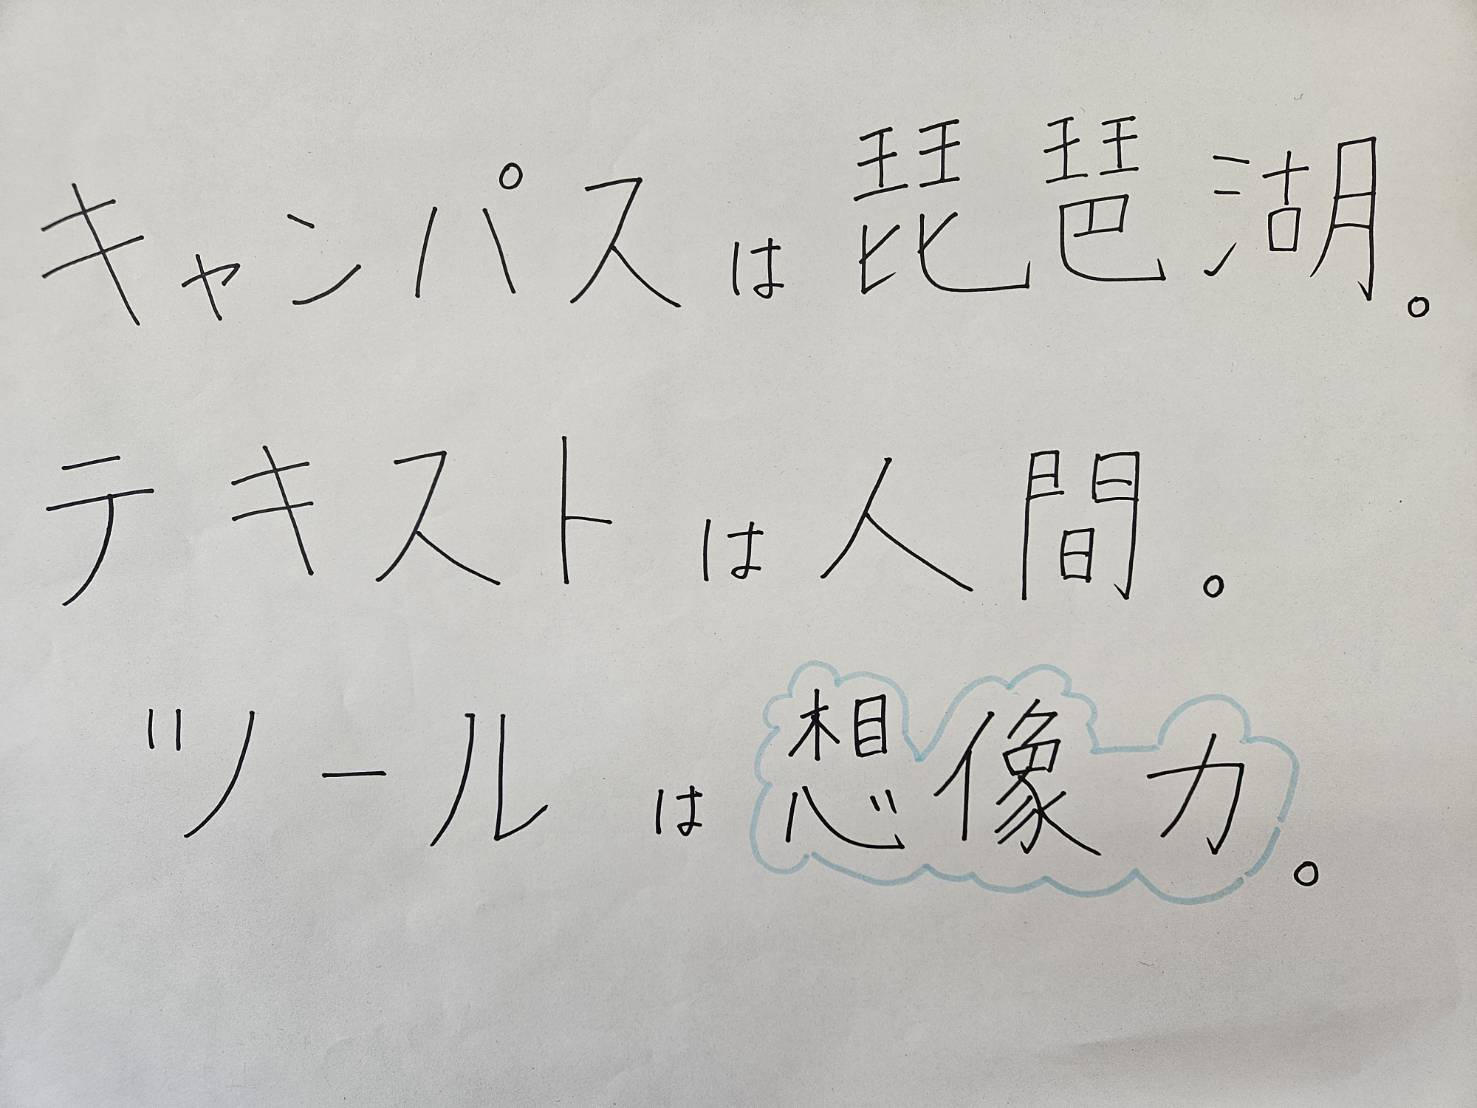 キャンパスは琵琶湖。
テキストは人間。
ツールは想像力。